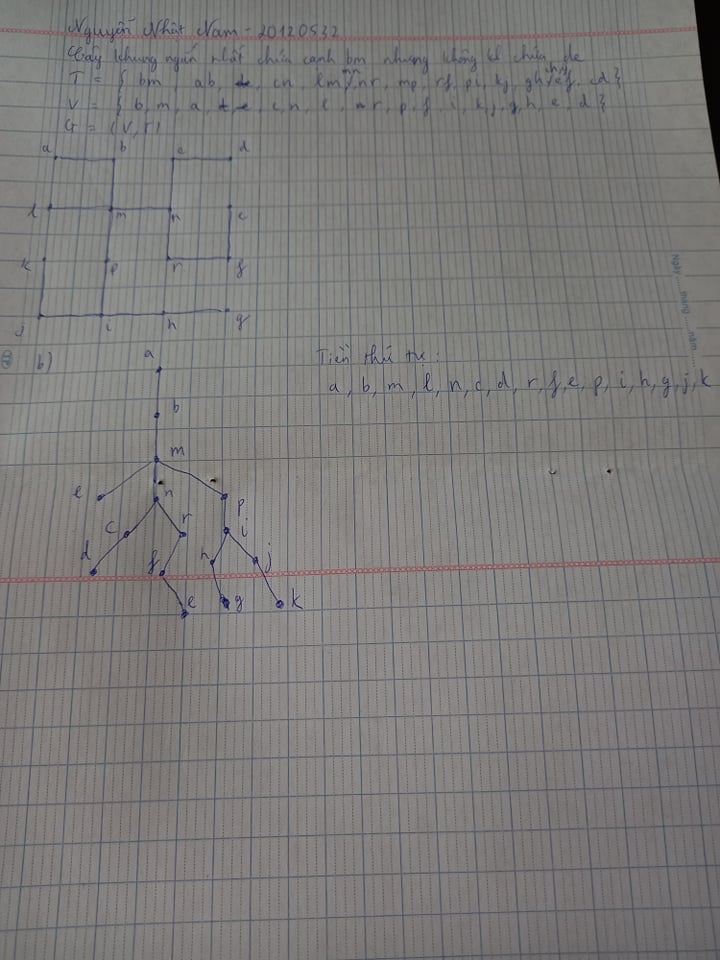 Nguyễn Nhật Nam - 20120532
Cây khung ngắn nhất chứa cạnh bm nhưng không chứa de
T = { bm, ab, cn, lm, mn, nr, mp, rf, pi, kj, gh, ef, cd }
V = { b, m, a, c, n, l, r, p, f, i, k, j, g, h, e, d }
G = (V, T)
a b c d
l m n e
k p r f
j i h g
b)
a
Tiền thứ tự :
a, b, m, l, n, c, d, r, f, e, p, i, h, g, j, k
b
m
l n p
c r i
d f h j
e g k
Ngày ..... tháng ..... năm .....